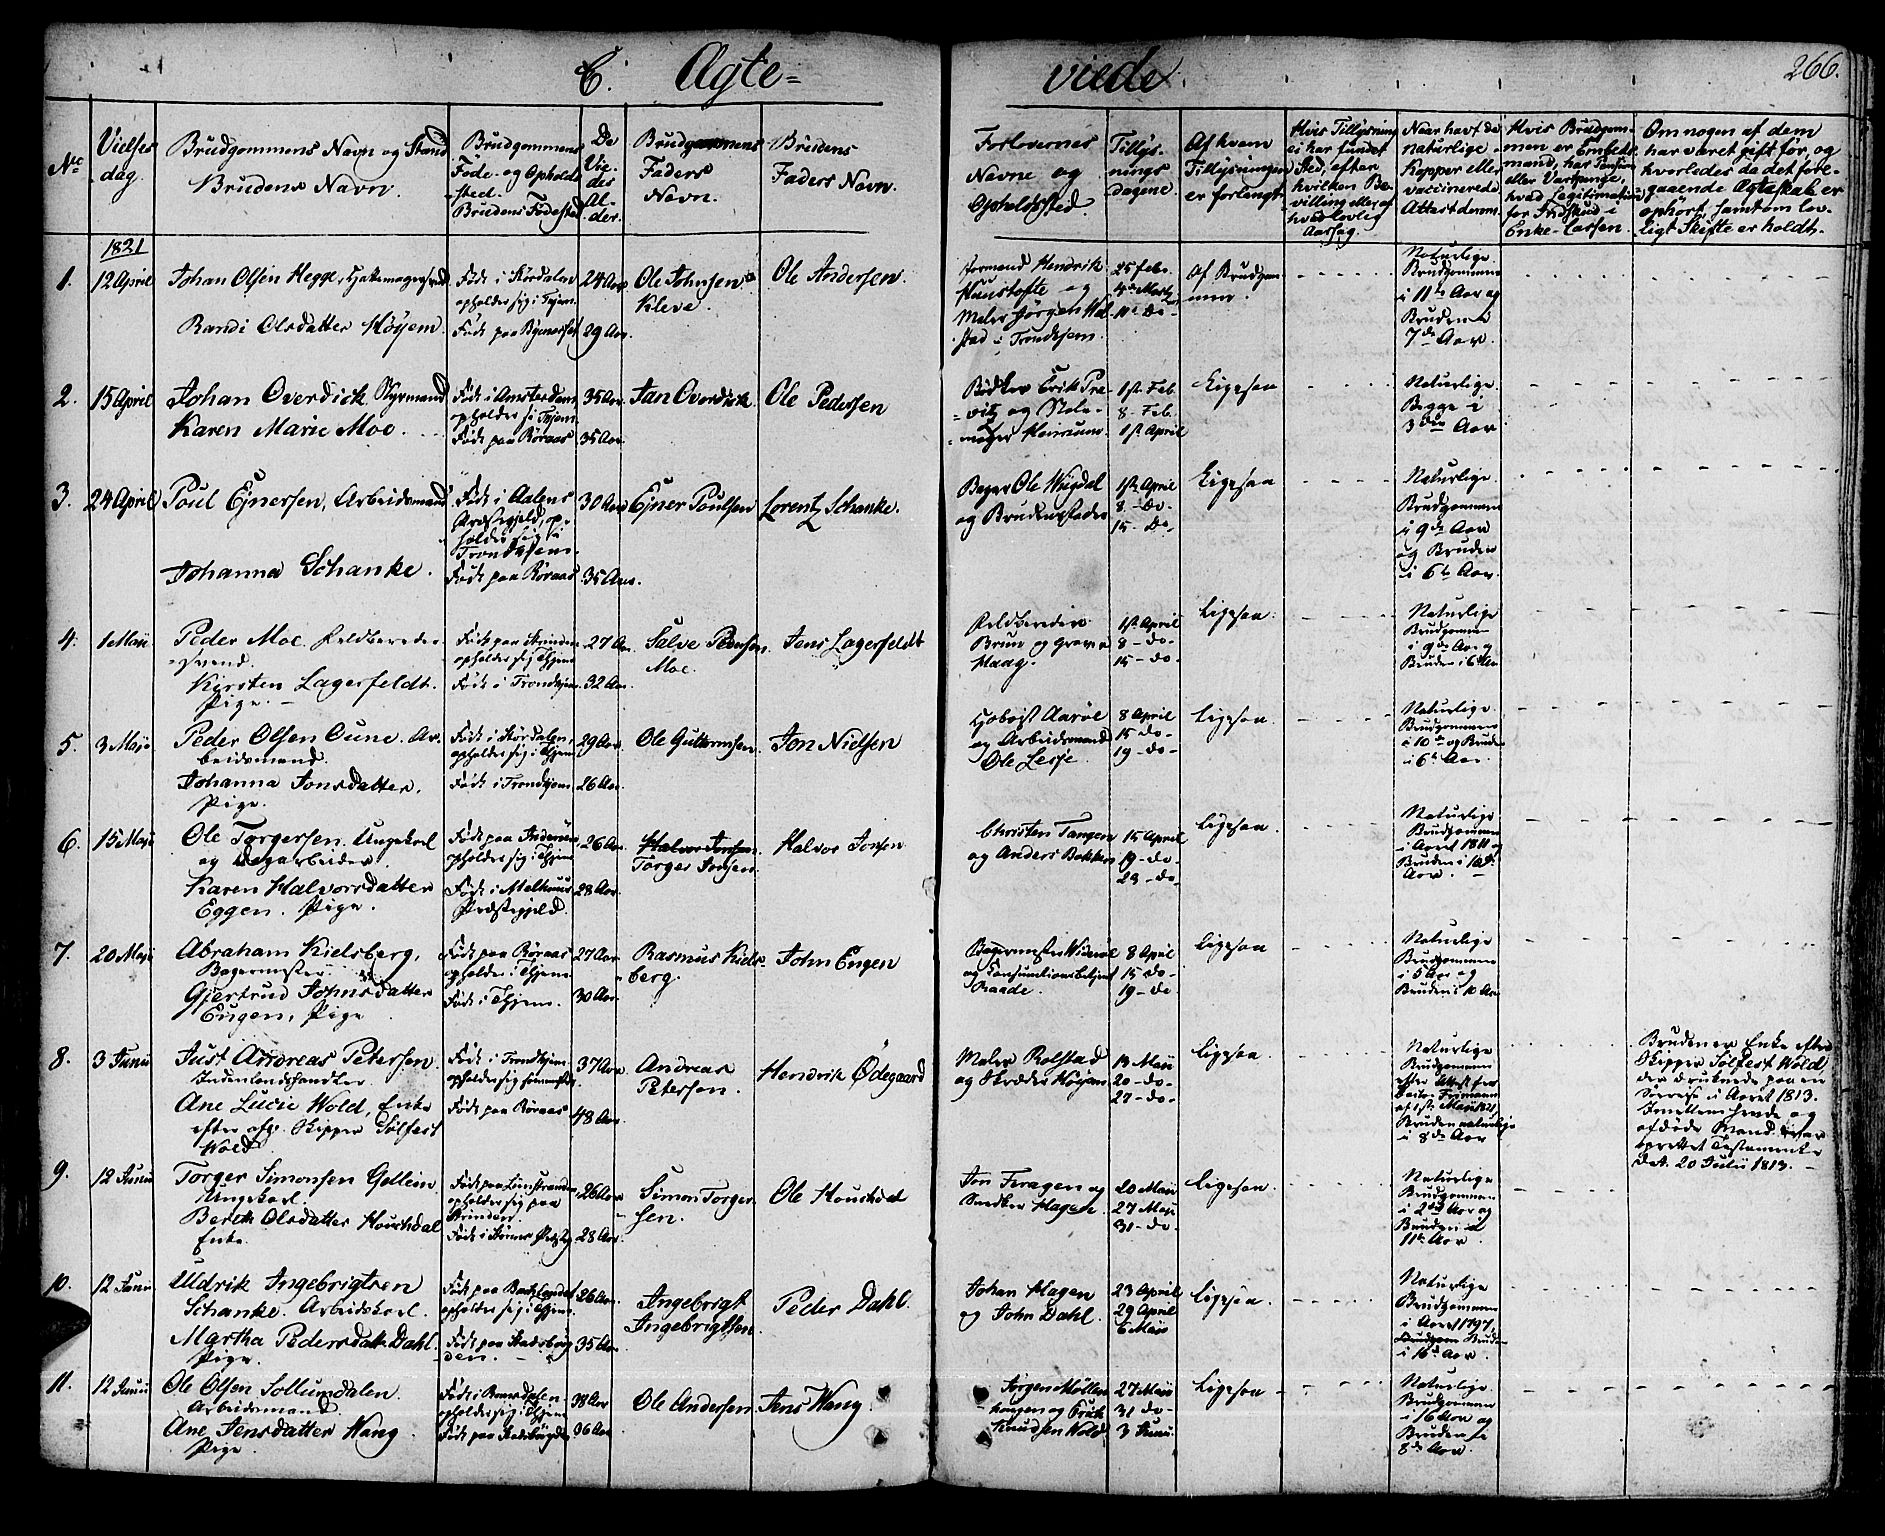 C. Ægte=
viede.
266.
No
Vielses
dag.
Brudgommens Navn og Stand
Brudens Navn.
Brudgommens
Føde- og Opholds
sted.
Brudens Fødested
De
Vie-
des
Al-
der.
Brudgommens
Faders
Navn.
Brudens
Faders Navn.
Forlovernes
Navne og
Opholdssted.
Tillys-
nings
dagene.
Af hvem
Tillysningen
er forlangt.
Hvis Tillysning
ei har fundet
Sted, efter
hvilken Be-
villing eller af
hvad lovlig
Aarsag.
Naar havt de
naturlige
Kopper eller
vaccinerede
Attest derom.
Hvis Brudgom-
men er Embeds
mand, har
eller Vartpenge,
hvad Legitimation
for Indskud i
Enke-Cassen.
Om nogen af dem
har været gift før, og
hvorledes da det fore-
gaaende Ægteskab er
ophørt, samt om lov-
ligt Skifte er holdt.
1821
1.
12 April
Johan Olsen Hegge,
Randi Olsdatter Høyem
Født i Størdalen
opholder sig i Tjem.
Født paa Bynesset
24 Aar
29 Aar.
Ole Johnsen
Kleve.
Ole Andersen.
Hendrik
og
Maler Jørgen Rol-
stad i Trondhjem.
25 Febr.
4de Marts
11te Do-
Af Brudgom-
men.
Naturlige.
Brudgommen
i 11te Aar og
Bruden i
7de Aar.
2.
15 April
Johan Overdick Styrmand
Karen Marie Moe.
Født i Amsterdam
opholder sig i Tjem.
Født paa Røraas
35 Aar.
35 Aar.
Jan Overdick.
Ole Pedersen
Erik Pra-
vitz og Skole-
1ste Feb.
8. Feb.
1ste April
Ligesaa
Naturlige.
Begge i
3die Aar.
3.
24 April
Poul Ejnersen, Arbeidsmand
Johanna Schanke.
Født i Aalens
Præstegjeld, op-
holder sig i
Trondhjem.
Født paa Røraas
30 Aar
35 Aar.
Ejner Poulsen
Lorentz Schanke.
Bager Ole Wigdal
og Brudens Fader
1ste April
8- Do.
15- Do.
Ligesaa
Naturlige
Brudgommen
i 9de Aar
og Bruden
i 6te Aar.
4.
1 Maii
Peder Moe. Feldbereder-
svend.
Kirsten Lagerfeldt.
Pige.
Født paa Strinden
opholder sig Thjem
Født i Trondhjem
27 Aar.
32 Aar.
Salve Pedersen
Moe.
Jens Lagerfeldt
Feldbereder
Brun og Graver
Haag.
1ste April
8- do-
15- do-
Ligesaa.
Naturlige
Brudgommen
i 9de Aar og
Bruden i 6te Aar
5.
3 Maii
Peder Olsen Oune. Ar-
beidsmand.
Johanna Jonsdatter,
Pige.
Født i Størdalen,
opholder sig i Thjem
Født i Trondhjem
29 Aar.
26 Aar.
Ole Guttormsen.
Jon Nielsen
Aarøe
og Arbeidsmand
Ole Lesje.
8 April
15 do-
19- do-
Ligesaa.
Naturlige.
Brudgommen
i 10de og Bruden
i 6te Aar.
6.
15 Maii
Ole Torgersen. Ungekarl
og Dagarbeider.
Karen Halvorsdatter
Eggen. Pige.
Født paa Inderøen
opholder sig i Thjem
Født i Melhuus
Præstegjeld.
26 Aar.
28 Aar.
Halvor Jonsen.
Torger Jonsen.
Halvor Jonsen
Christen Tangen
og Anders Bakken
15 April
19- do-
23- do-
Ligesaa.
Naturlige
Brudgommen
i Aaret 1811 og
Bruden i 10de
Aar.
7.
20 Maii
Abraham Kielsberg,
Bagermester.
Gjertrud Johnsdatter
Engen, Pige
Født paa Røraas
opholder i Thjem
Født i Thjem.
27 Aar.
30 Aar.
Rasmus Kiels-
berg.
John Engen
Bagermester Widerøe
og Consumtionsbetjent
Raade.
8 April
15 do-
19- do-
Ligesaa
Naturlige
Brudgommen
i 5 Aar og
Bruden i 10 Aar
8.
3 Junii
Just Andreas Petersen.
Indenlandshandler.
Ane Lucie Wold, Enke
efter afg. Skipper Sølfest
Wold.
Født i Trondhjem
opholder sig sammesteds
Født paa Røraas
37 Aar
48 Aar
Andreas
Petersen.
Hendrik Ødegaard
Maler Rolstad
og Skræder Høyem
13 Maii
20- do-
27- do-
Ligesaa
Naturlige
Brudgommen
efter Attest fra
Doctor Frimann
af 1ste Maii 1821,
Bruden naturlige
i 8de Aar
Bruden er Enke efter
Skipper Sølfest Wold,
der druknede paa en
Søereise i Aaret 1813.
Imellem hende og
afdøde Mand var
oprettet Testamente
dat. 20 Julii 1813.
9.
12 Junii
Torger Simonsen Gellein.
Ungekarl.
Bereth Olsdatter Hourhdal
Enke.
opholder sig paa
Strinden.
Født i Præsteg
26 Aar.
28 Aar.
Simon Torger-
sen.
Ole Hourhdal
Jon Fragen og
Snedker Hagen.
20 Maii
27 Maii
31- do-
Ligesaa.
Naturlige
Brudgommen
i 2det Aar og
Bruden i
11te Aar.
10.
12 Junii
Uldrik Ingebrigtsen
Schanke. Arbeidskarl.
Martha Pedersdatt. Dahl.
Pige.
Født paa Baklandet
opholder sig i Thjem.
Født paa Stadsbøig-
den.
26 Aar.
35 Aar.
Ingebrigt
Ingebrigtsen.
Peder Dahl.
Johan Hagen
og John Dahl.
23 April
29 April
6 Maii
Ligesaa.
Naturlige
Brudgommen
i Aaret 1797,
Brudgom Bruden
i 16de Aar.
11.
12 Junii
Ole Olsen Sollumdalen.
Arbeidsmand.
Ane Jensdatter Wang.
Pige
opholder sig i Thjem
Født paa Stadsbøigden
38 Aar
36 Aar.
Ole Andersen.
Jens Wang.
Jørgen Møllen
og Erik
Knudsen Wold
27 Maii
31 do-
3 Junii
Ligesaa
Naturlige.
Brudgommen
i 16 Aar og
Bruden i
8de Aar.